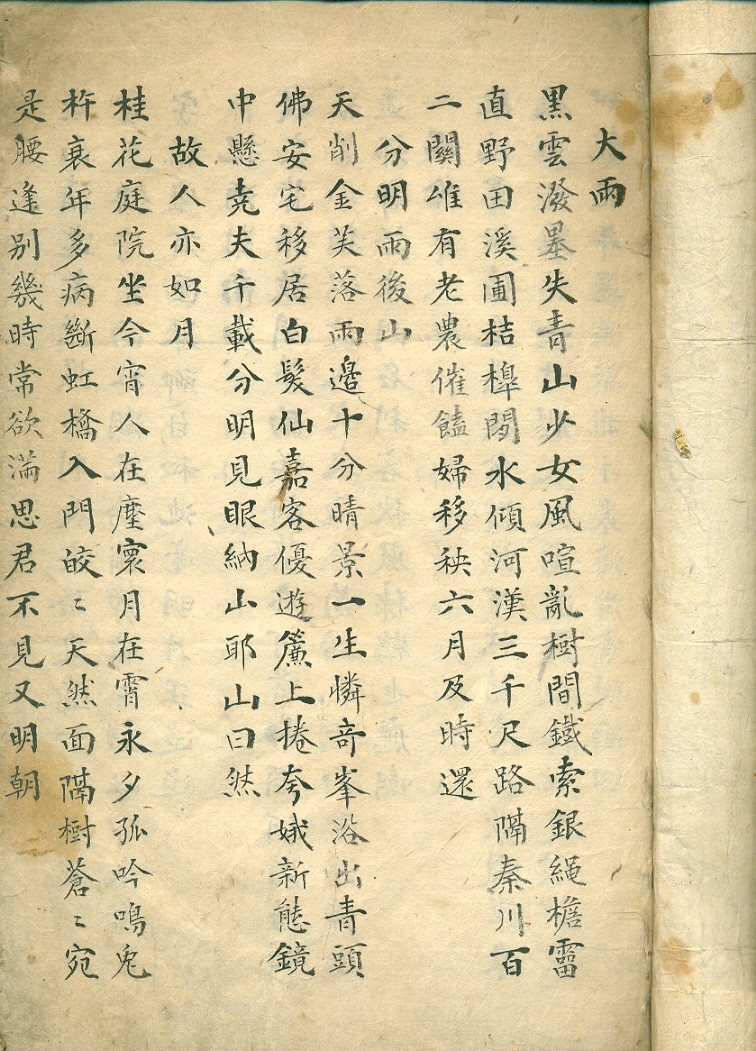 大雨
黑雲潑墨失青山少女風喧亂樹間鐵索銀繩檐霤
直野田溪圃桔槹閑水傾河漢三千尺路隔秦川百
二關雄有老農催饁婦移秧六月及時還
分明雨後山
天削金芙落雨邉十分晴景一生憐奇峯浴出青頭
佛安宅移居白髮仙嘉客優遊簾上捲夸娥新態鏡
中懸堯夫千載分明見眼納山耶山曰然
故人亦如月
桂花庭院坐今宵人在塵寰月在霄永夕孤吟鳴兎
杵衰年多病斷虹橋入門皎〻天然面隔樹蒼〻宛
是腰逢別幾時常欲滿思君不見又明朝